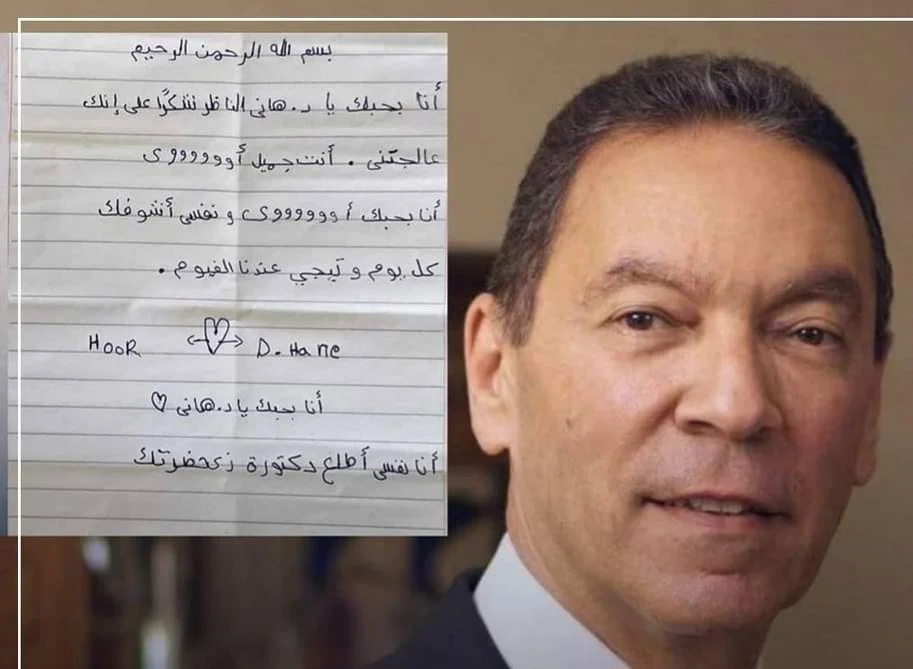 بسم الله الرحمن الرحيم
أنا بحبك يا د.هاني الناظر شكرًا على إنك
عالجتني . أنت جميل أوووووو ى
أنا بحبك أ ووووووى و نفسى أشوفك
كل يوم و تيجي عندنا الفيوم .
HooR ♡ D.Hane
أنا بحبك يا د.هانى ♡
أنا نفسى أطلع دكتورة زى حضرتك